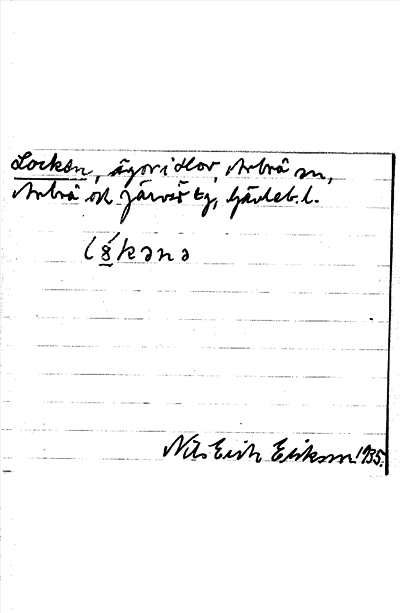 Locken, ägoridlor, Arbrå sn,
Arbrå och Järvsö tg, Gävleb. l.
lǻkənə
Nils Erik Erikson 1935.